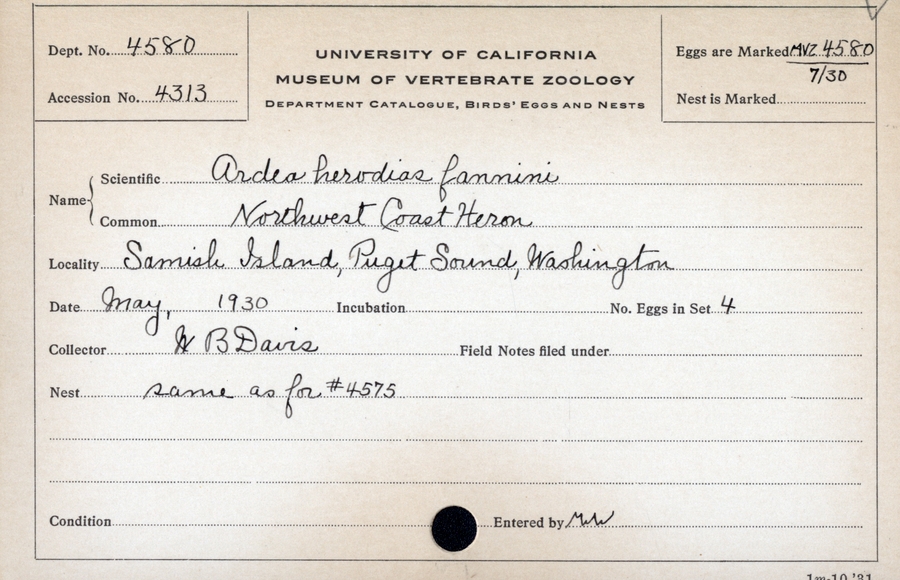 Dept. No. 4580
Accession No. 4313
UNIVERSITY OF CALIFORNIA
MUSEUM OF VERTEBRATE ZOOLOGY
DEPARTMENT CATALOGUE, BIRDS' EGGS AND NESTS
Eggs are Marked MVZ 4580
7/30
Nest is Marked
Name
Scientific Ardea herodias fannini
Common Northwest Coast Heron
Locality Samish Island, Puget Sound, Washington
Date May, 1930 Incubation No. Eggs in Set 4
Collector W B Davis Field Notes filed under
Nest same as for #4575
Condition Entered by
1m-10,'31